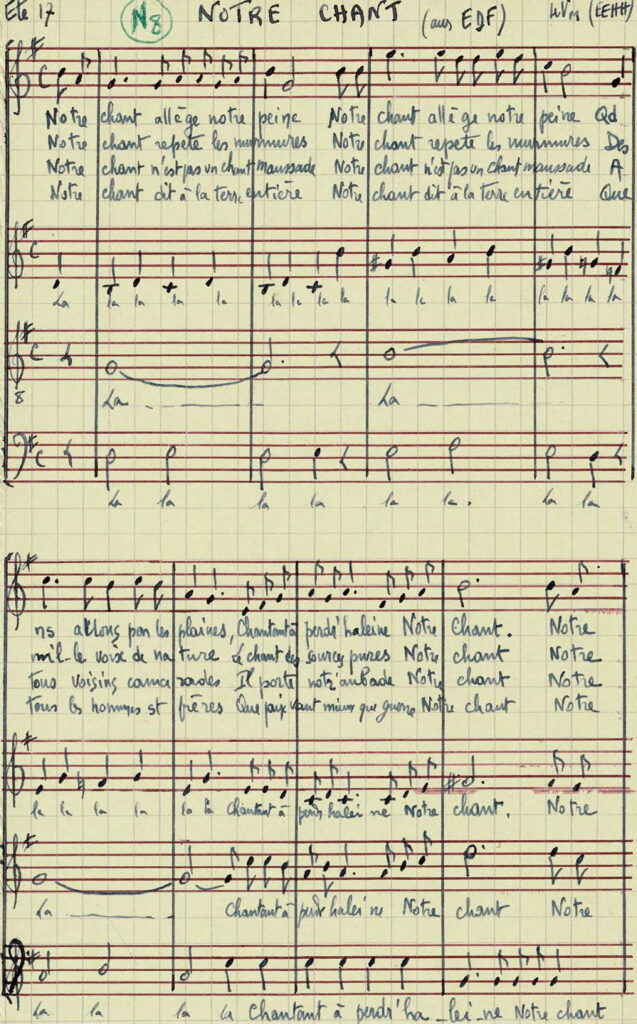 Eté 17 N8 NOTRE CHANT (aus EDF) (EEHH)
Notre chant allège notre peine Notre chant allège notre peine Qd
Notre chant repete les murmures Notre chant repete les murmures Des
Notre chant n'est pas un chant maussade Notre chant n'est pas un chant maussade A
Notre chant dit à la terre entière Notre chant dit à la terre entière Que
La la la la la la la la la la la la la la la la la
8
La La
La la la la la la. La la
ns allons par les plaines, Chantant à perdr' haleine Notre chant. Notre
mil-le voix de na ture Le chant des sources pures Notre chant Notre
tous voisins cama rades Il porte notr' aubade Notre chant Notre
tous les hommes st frères Que paix vaut mieux que guerre Notre chant Notre
la la la la la la Chantant à perdr' halei ne Notre chant. Notre
La Chantant à perdr halei ne Notre chant Notre
La la la la Chantant à perdr' ha - lei - ne Notre chant